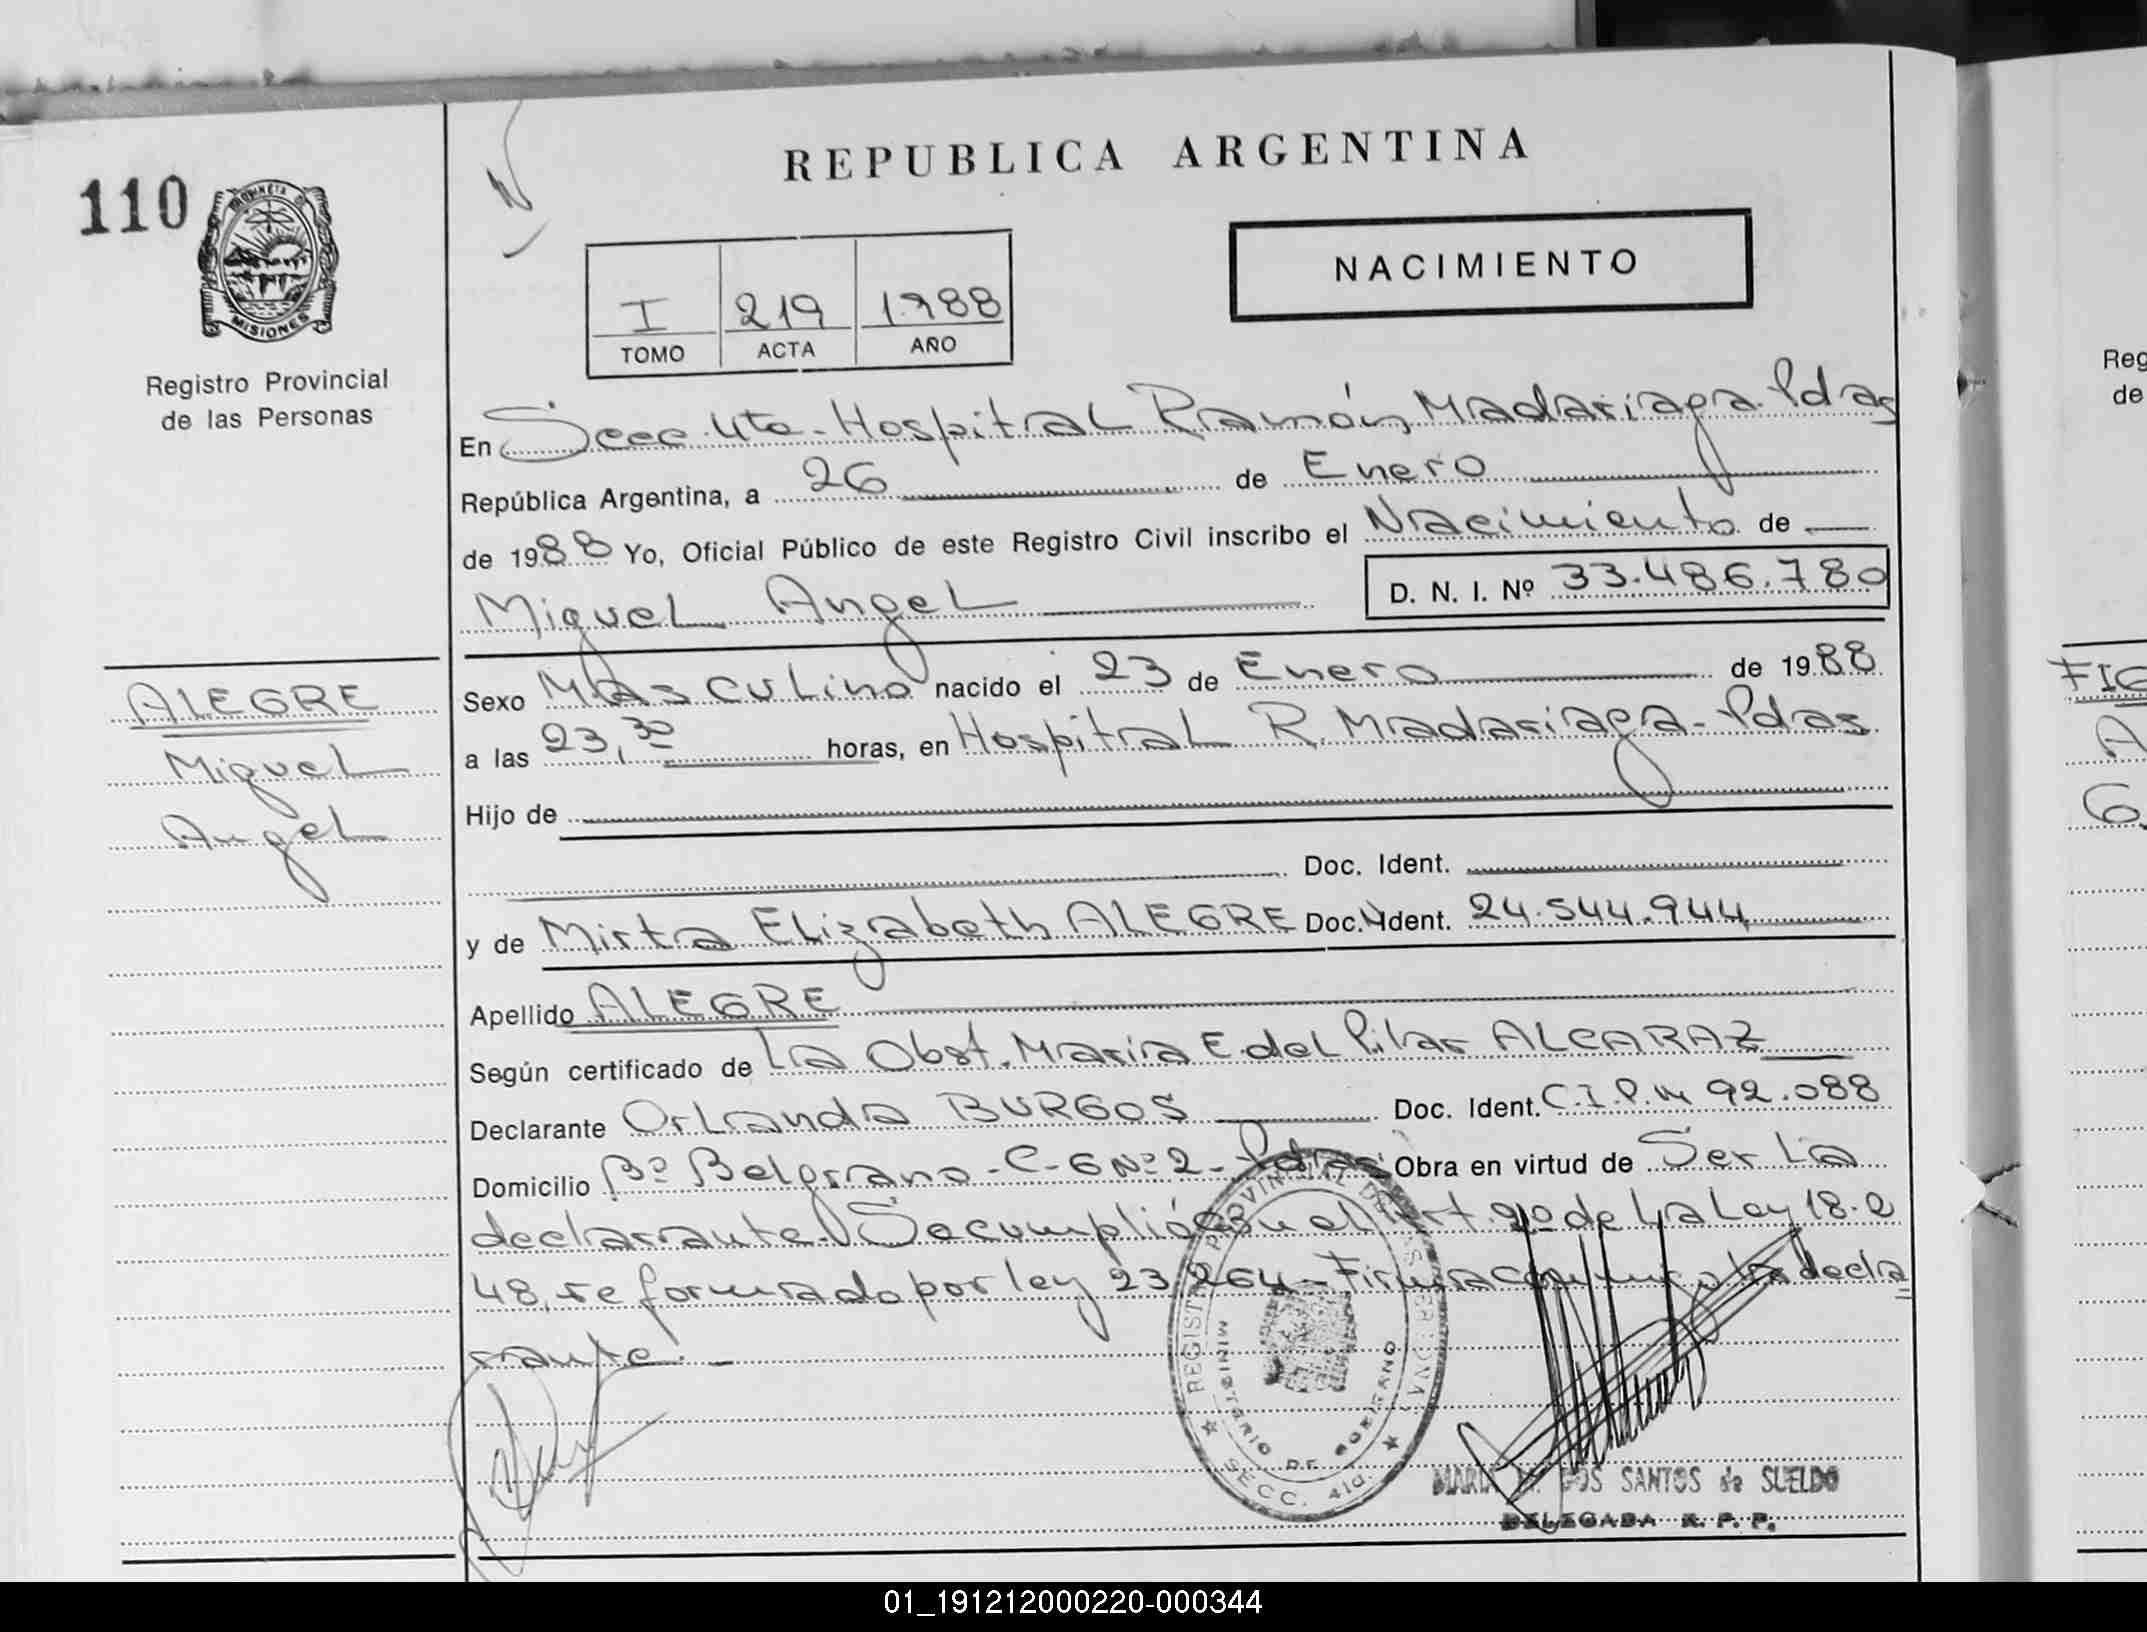 REPUBLICA ARGENTINA
110
PROVINCIA DE
MISIONES
Registro Provincial
de las Personas
NACIMIENTO
I 219 1.988
TOMO ACTA AÑO
En Secc. 4ta. Hospital Ramón Madariaga. Pdas
República Argentina, a 26 de Enero
de 1988 Yo, Oficial Público de este Registro Civil inscribo el Nacimiento de
Miguel Angel D. N. I. Nº 33.486.780
Sexo Masculino nacido el 23 de Enero de 1988
a las 23,30 horas, en Hospital R. Madariaga - Pdas
Hijo de
Doc. Ident.
y de Mirta Elizabeth ALEGRE Doc. Ident. 24.544.944
Apellido ALEGRE
Según certificado de La Obst. María E. del Pilar ALCARAZ
Declarante Orlanda BURGOS Doc. Ident. C.I.P.M 92.088
Domicilio Bº Belgrano - C- 6 Nº 2 - Pdas Obra en virtud de Ser La
declarante. Se cumplió con el Art. 2º de La Ley 18.2
48, reformado por ley 23.264 - Firma conmigo la decla
rante. -
ALEGRE
Miguel
Angel
REGISTRO PROVINCIAL DE LAS PERSONAS
MINISTERIO DE GOBIERNO
SECC. 4ta.
DOS SANTOS de SUELDO
DELEGADA R. P. P.
Reg
de
FIG
A
G.
01_191212000220-000344